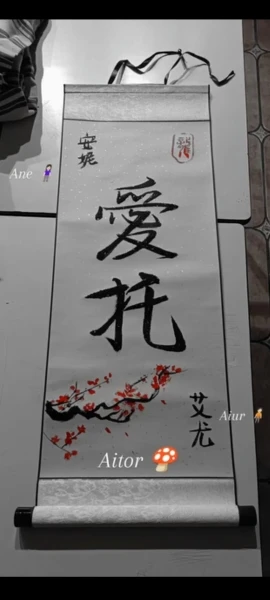 安妮
Ane
愛托
艾尤
Aiur
Aitor